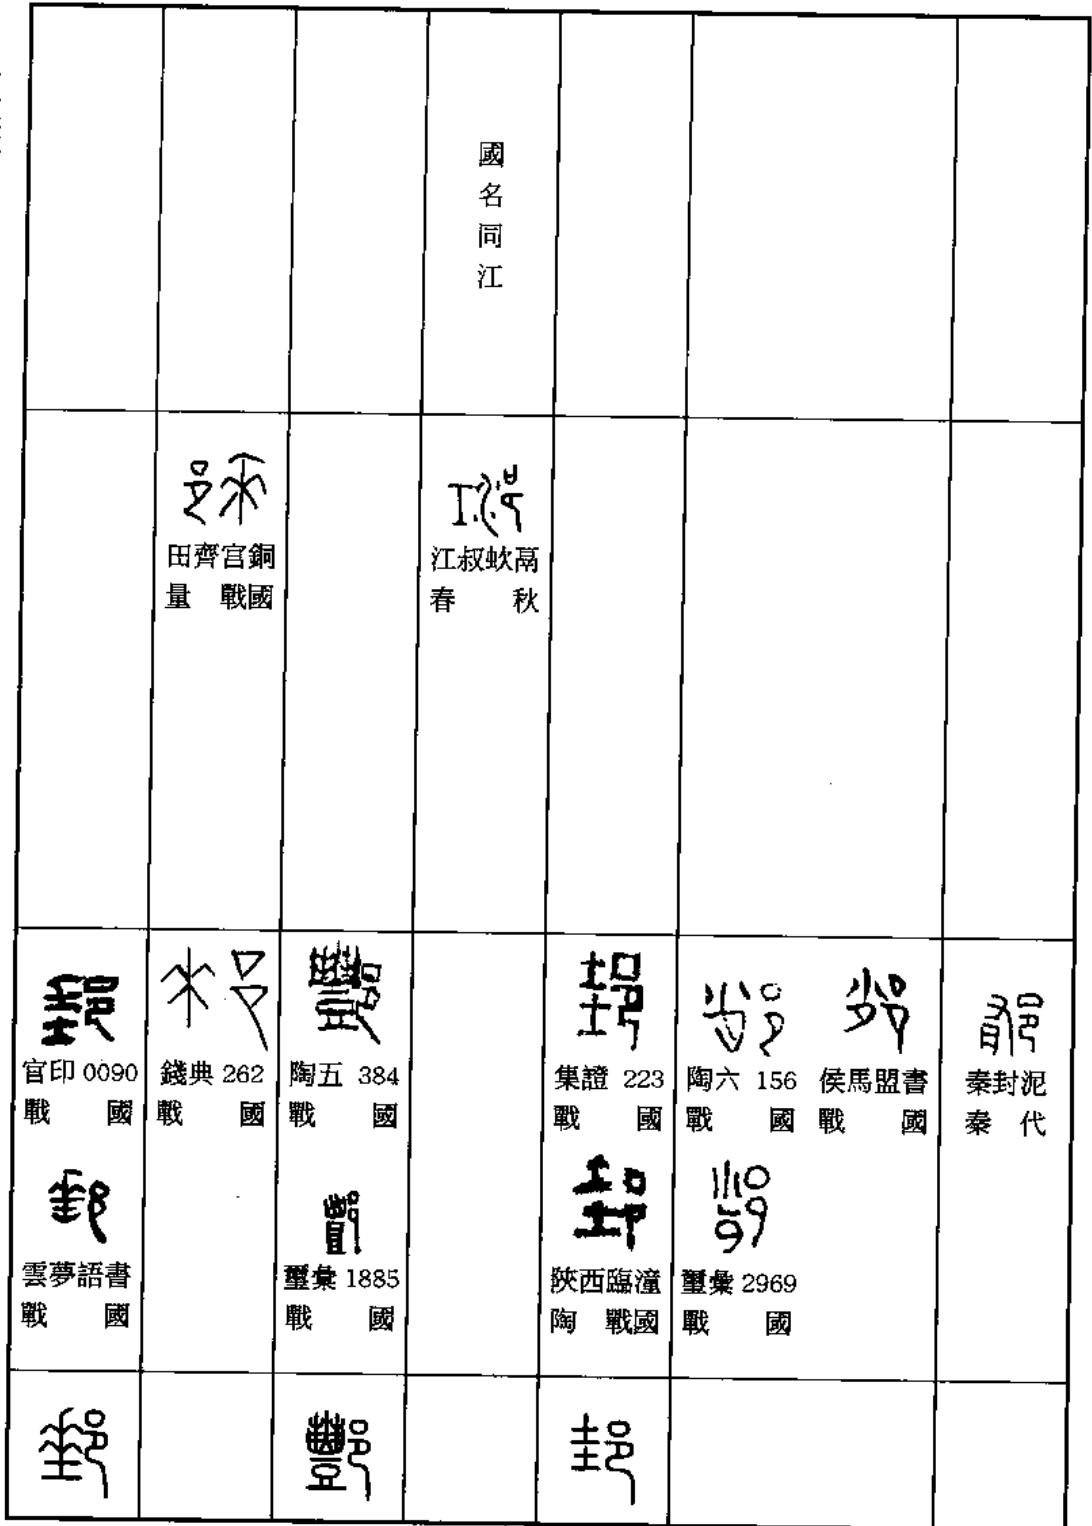 國名同江
田齊宮銅
量 戰國
江叔蚥鬲
春 秋
官印 0090
戰 國
錢典 262
戰 國
陶五 384
戰 國
集證 223
戰 國
陶六 156
戰 國
侯馬盟書
戰 國
秦封泥
秦 代
雲夢語書
戰 國
璽彙 1885
戰 國
陝西臨潼
陶 戰國
璽彙 2969
戰 國
郵 酆 邽